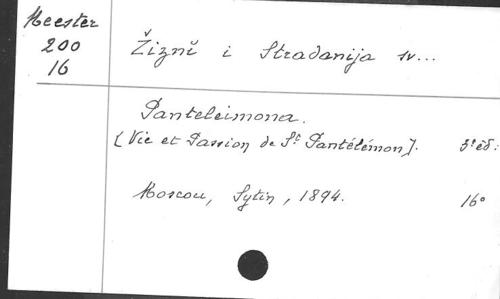 Meester
200
16
Žiznĭ i Stradanija sv...
Panteleimona.
[Vie et Passion de St Pantélémon]. 3e éd.
Moscou, Sytin, 1894. 16°